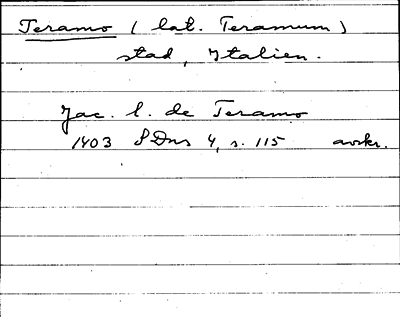 Teramo (lat. Teramum)
stad, Italien.
Jac. l. de Teramo
1403 SDns 4, s. 115 avskr.